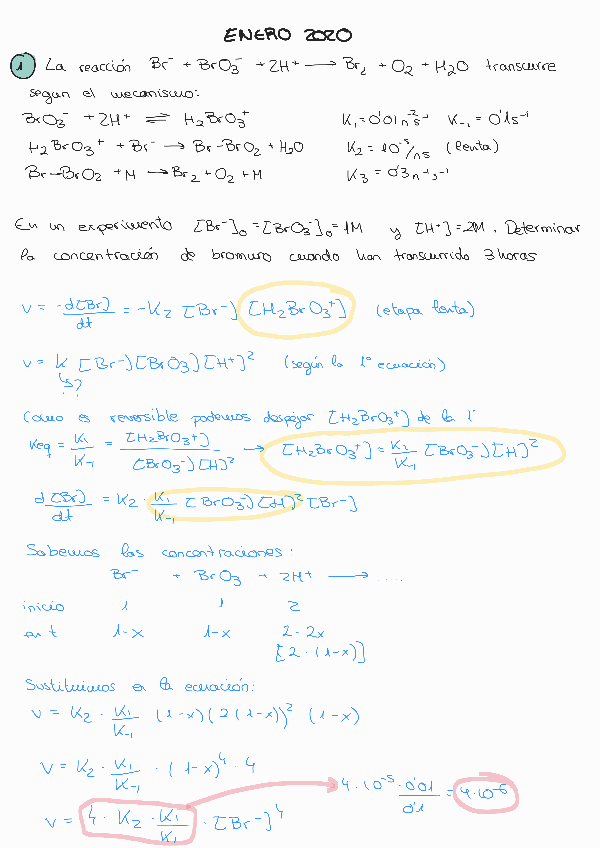 ENERO 2020
1 La reacción Br⁻ + BrO₃⁻ + 2H⁺ → Br₂ + O₂ + H₂O transcurre
según el mecanismo:
BrO₃⁻ + 2H⁺ ⇌ H₂BrO₃⁺ K₁=0'01 n⁻²s⁻¹ K₋₁ = 0'1s⁻¹
H₂BrO₃⁺ + Br⁻ → Br-BrO₂ + H₂O K₂ = 10⁻⁵/ns (lenta)
Br-BrO₂ + M → Br₂ + O₂ + M K₃ = 0'3n⁻¹s⁻¹
En un experimento [Br⁻]₀ = [BrO₃⁻]₀ = 1M y [H⁺] = 2M. Determinar
la concentración de bromuro cuando han transcurrido 3 horas
v = -d[Br]/dt = -K₂ [Br⁻] [H₂BrO₃⁺] (etapa lenta)
v = K [Br⁻][BrO₃][H⁺]² (según la 1ª ecuación)
↳?
Como es reversible podemos despejar [H₂BrO₃⁺] de la 1ª
Keq = K₁/K₋₁ = [H₂BrO₃⁺]/[BrO₃⁻][H]² → [H₂BrO₃⁺] = K₁/K₋₁ [BrO₃⁻][H]²
d[Br]/dt = K₂ · K₁/K₋₁ [BrO₃⁻][H]² [Br⁻]
Sabemos las concentraciones:
Br⁻ + BrO₃ + 2H⁺ → .....
inicio 1 1 2
en t 1-x 1-x 2-2x
[2·(1-x)]
Sustituimos en la ecuación:
v = K₂ · K₁/K₋₁ (1-x)(2(1-x))² (1-x)
v = K₂ · K₁/K₋₁ · (1-x)⁴ · 4
4·10⁻⁵ · 0'01/0'1 = 4·10⁻⁶
v = 4 · K₂ · K₁/K₋₁ · [Br⁻]⁴